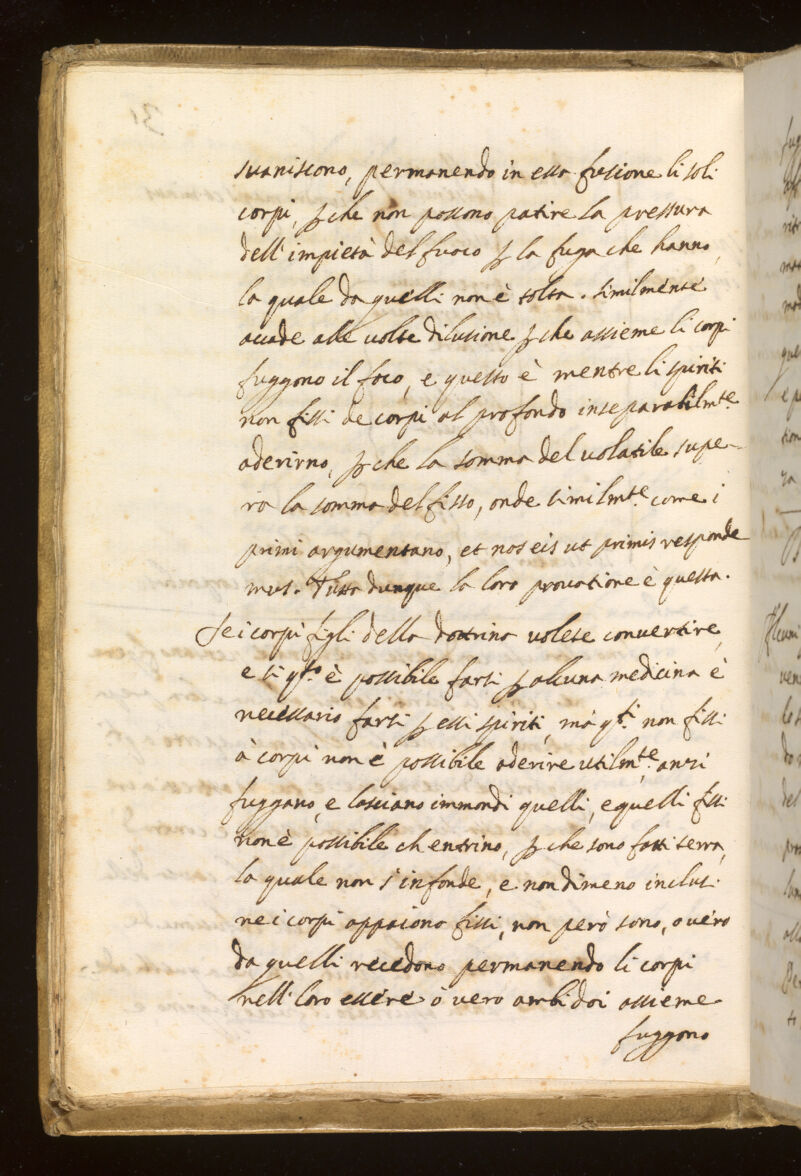 suaniscono, permanendo in essa fusione li soli
corpi, p che non possono patire la pressura
dell'impietà del fuoco p la fuga che hanno,
la quale da quelli non è tolta. Similmente
accade alle volte dilusione p che assieme li corpi
fuggono il foco, e questo è mentre li spiriti
non fissi de corpi al profondo inseparabilmte
aderirno, p che la somma del volatile supe-
ra la somma del fisso, onde similmte come i
primi argumentano, et nos eis ut primis responde
mus. Tutta dunque la loro provatione è questa.
Se i corpi figli della dottrina volete convertire,
e si qto è possibile farsi p alcuna medicina è
necessario farsi p essi spiriti, mà qti non fissi
à corpi non è possibile aderire utilmte anzi
fuggano, e lasciano immondi quelli, e quelli fissi
non è possibile ch entrino, p che sono fatti terra,
la quale non s'infonde, e nondimeno inclusi
ne i corpi appaiono fissi, non però sono, overo
da quelli recedono permanendo li corpi
nell loro essere ò vero ambidoi assieme
fuggono